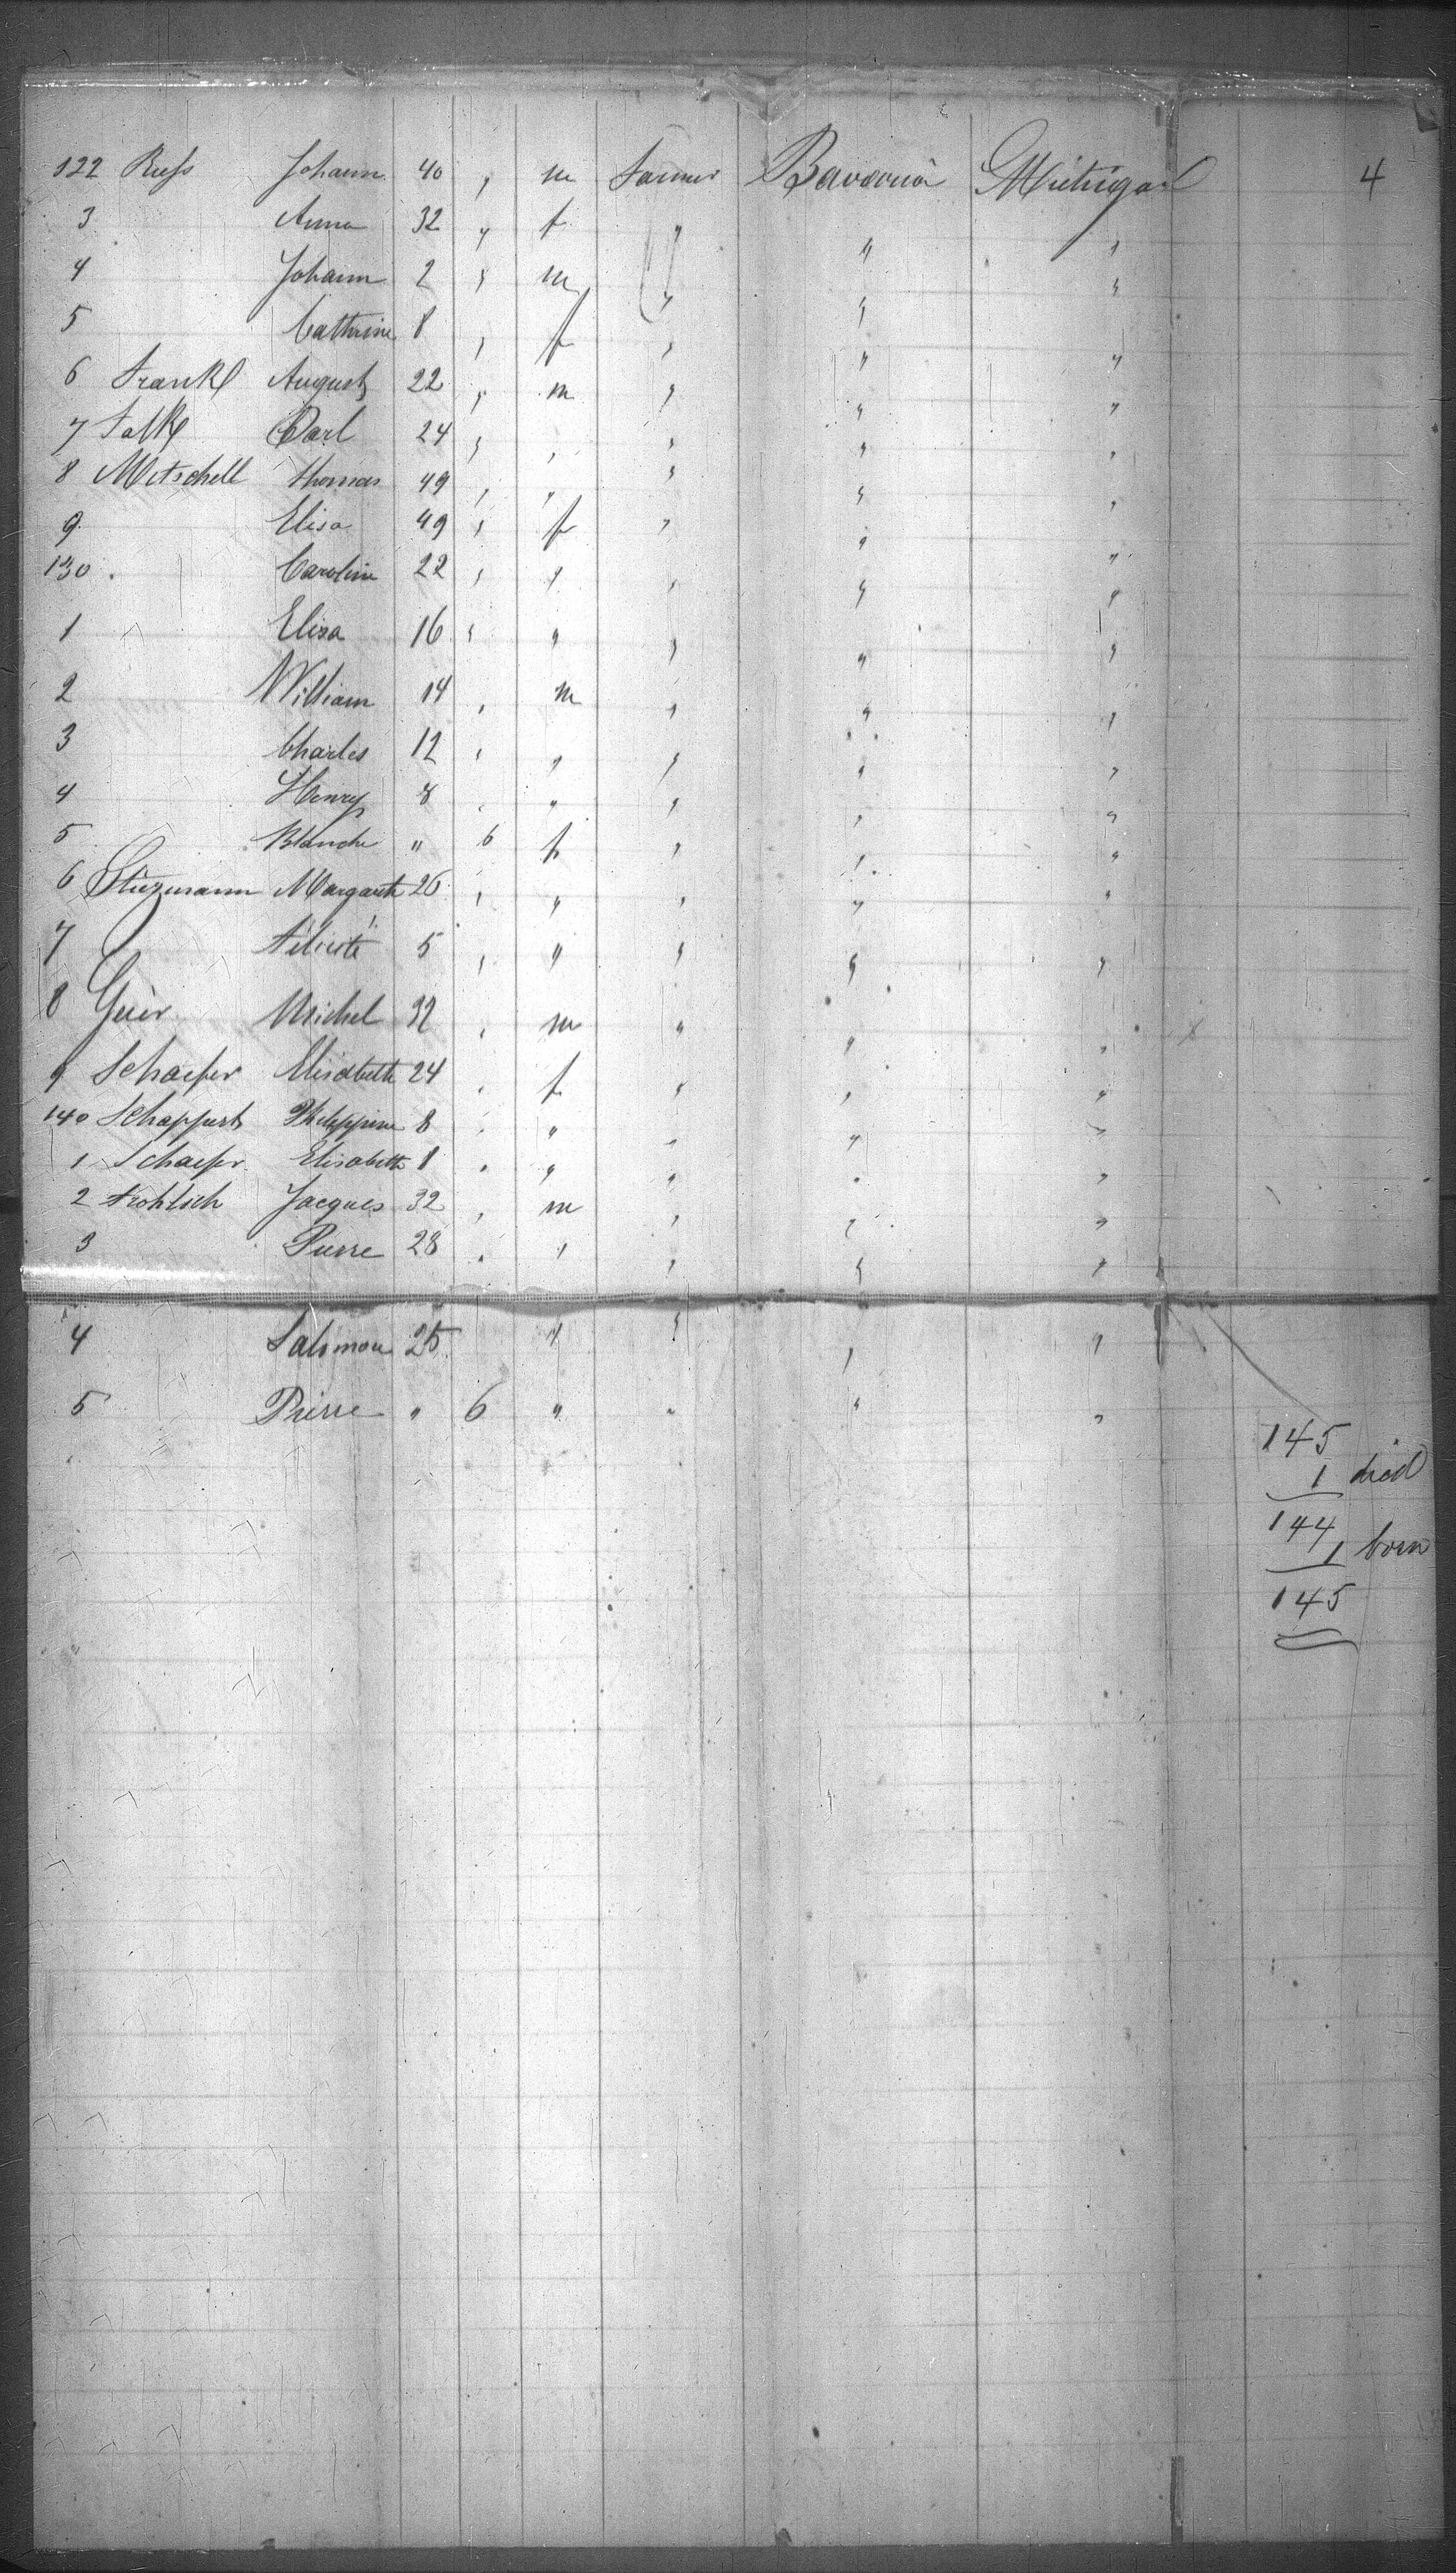 122 Russ Johann 40 , m Farmer Bavaria Michigan 4
3 Anna 32 " f " " "
4 Johann 2 " m " " "
5 Cathrine 8 " f " " "
6 Frank August 22 " m " " "
7 Falk Carl 24 " " " " "
8 Mitschell Thomas 49 " " " " "
9 Elisa 49 " f " " "
130 Caroline 22 " " " " "
1 Elisa 16 " " " " "
2 William 14 " m " " "
3 Charles 12 " " " " "
4 Henry 8 " " " " "
5 Blanche " 6 f " " "
6 Margareth 26 " " " " "
7 Félicité 5 " " " " "
8 Geier Michel 32 " m " " "
9 Schaefer Elisabeth 24 " f " " "
140 Schappert Philippine 8 " " " " "
1 Schaefer Elisabeth 1 " " " " "
2 Frohlich Jacques 32 " m " " "
3 Pierre 28 " " " " "
4 Salomon 25 " " " "
5 Pierre " 6 " " " "
145
1 died
144
1 born
145